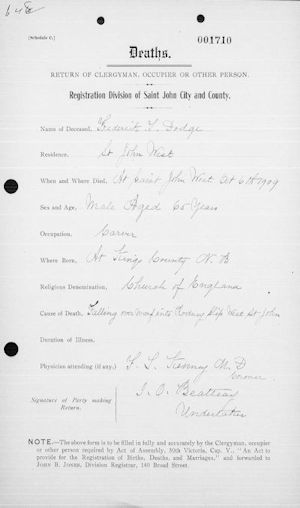 648
[Schedule C.]
001710
Deaths.
RETURN OF CLERGYMAN, OCCUPIER OR OTHER PERSON.
Registration Division of Saint John City and County.
Name of Deceased, Frederick T. Dodge
Residence, St John West
When and Where Died, At Saint John West Oct 6th 1909
Sex and Age, Male Aged 65 Years
Occupation, Carver
Where Born, At Kings County N. B
Religious Denomination, Church of England
Cause of Death, Falling over wharf into Rodney Slip West St. John
Duration of Illness,
Physician attending (if any), F. L. Kenney M. D
Coroner
Signature of Party making Return. I. O. Beatteay
Undertaker
NOTE.—The above form is to be filled in fully and accurately by the Clergyman, occupier
or other person required by Act of Assembly, 50th Victoria, Cap. V., "An Act
to provide for the Registration of Births, Deaths, and Marriages," and forwarded to
JOHN B. JONES, Division Registrar, 140 Broad Street.